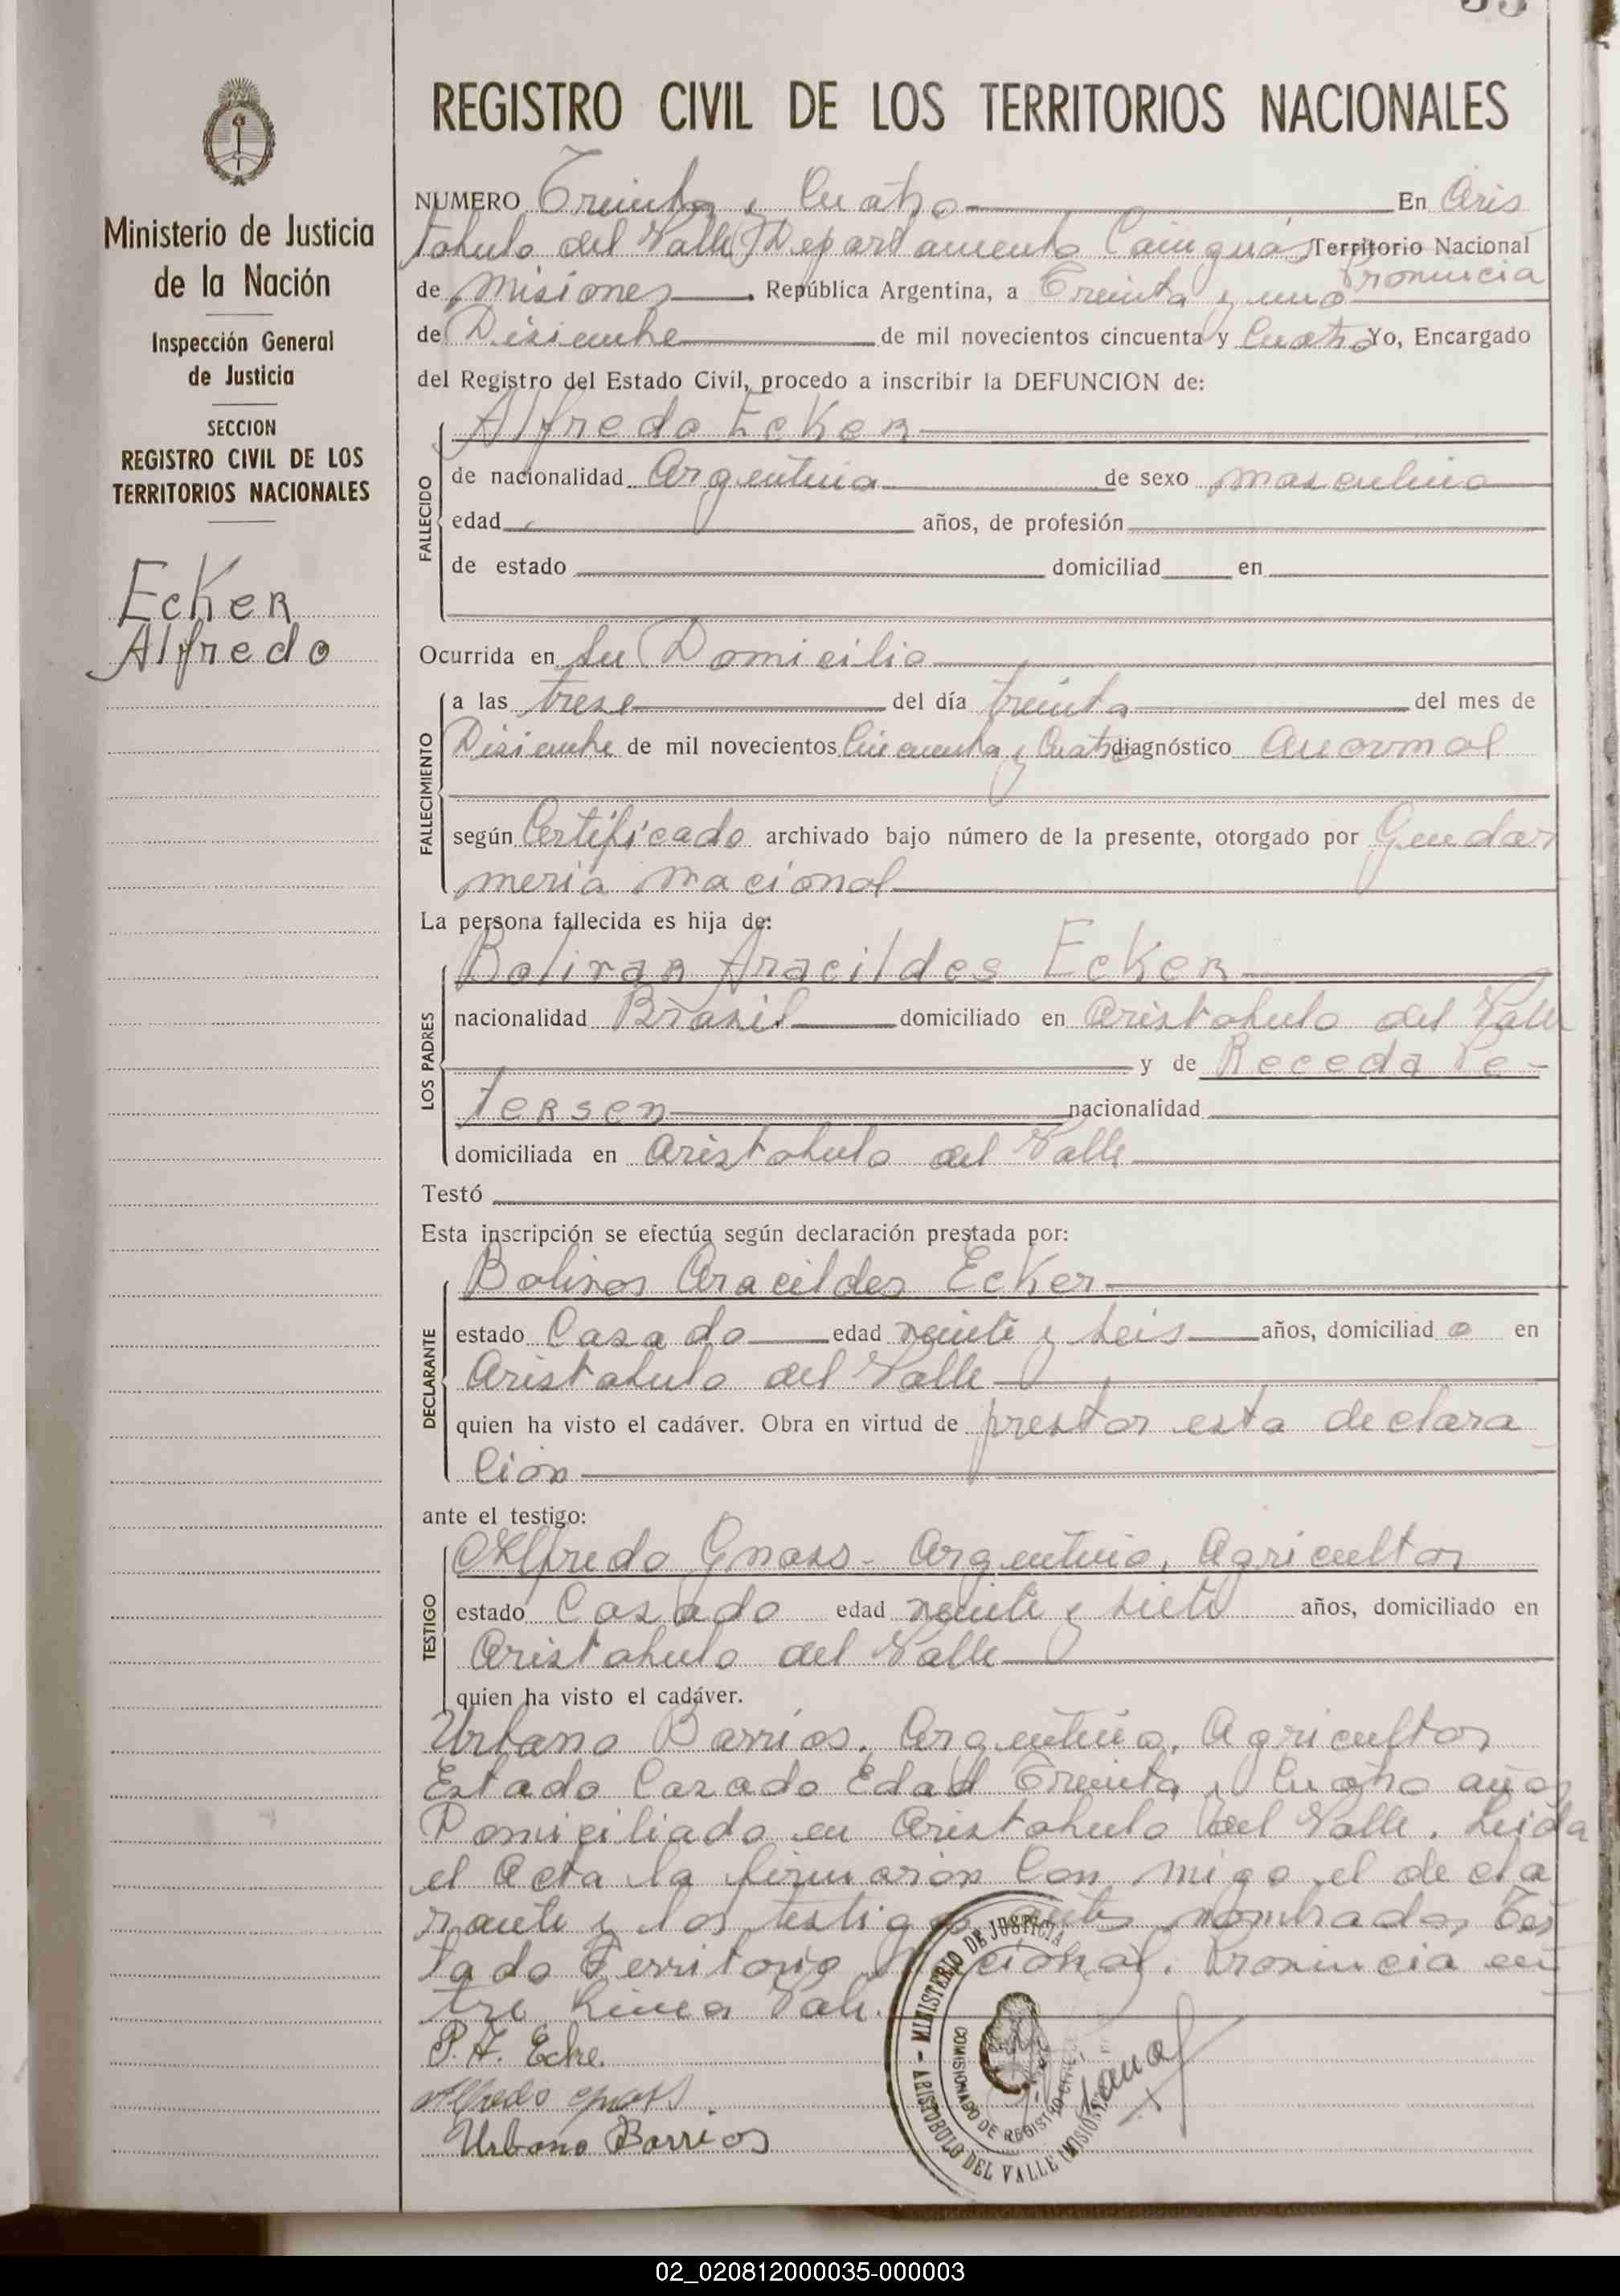 33
REGISTRO CIVIL DE LOS TERRITORIOS NACIONALES
Ministerio de Justicia
de la Nación
Inspección General
de Justicia
SECCION
REGISTRO CIVIL DE LOS
TERRITORIOS NACIONALES
Ecker
Alfredo
NUMERO Treinta y Cuatro En Aris
tobulo del Valle Departamento Cainguás Territorio Nacional
Provincia
de Misiones República Argentina, a Treinta y uno
de Disiembre de mil novecientos cincuenta y Cuatro Yo, Encargado
del Registro del Estado Civil, procedo a inscribir la DEFUNCION de:
Alfredo Ecker
FALLECIDO
de nacionalidad Argentina de sexo masculino
edad años, de profesión
de estado domiciliad en
Ocurrida en Su Domicilio
FALLECIMIENTO
a las trese del día treinta del mes de
Disiembre de mil novecientos Cincuenta y Cuatro diagnóstico Anormal
según Certificado archivado bajo número de la presente, otorgado por Gendar
meria nacional
La persona fallecida es hija de:
LOS PADRES
Bolivar Aracildes Ecker
nacionalidad Brasil domiciliado en Aristobulo del Valle
y de Receda Pe-
tersen nacionalidad
domiciliada en Aristobulo del Valle
Testó
Esta inscripción se efectúa según declaración prestada por:
DECLARANTE
Bolivar Aracildes Ecker
estado Casado edad veinte y seis años, domiciliad o en
Aristobulo del Valle
quien ha visto el cadáver. Obra en virtud de prestar esta declara
cion
ante el testigo:
TESTIGO
Alfredo Gnass - Argentino, Agricultor
estado Casado edad veinte y siete años, domiciliado en
Aristobulo del Valle
quien ha visto el cadáver.
Urbano Barrios, Argentino, Agricultor
Estado Casado Edad Treinta y Cuatro años
Domiciliado en Aristobulo del Valle. Leida
el Acta la firmaron Con migo el decla
rante y los testigos antes nombrados Tes
tado Territorio Nacional. Provincia en
tre Linea Vale.
P. A. Ecke.
Alfredo Gnass.
Urbano Barrios
MINISTERIO DE JUSTICIA - ARISTOBULO DEL VALLE (MISIONES)
COMISIONADO DE REGISTRO CIVIL
02_020812000035-000003